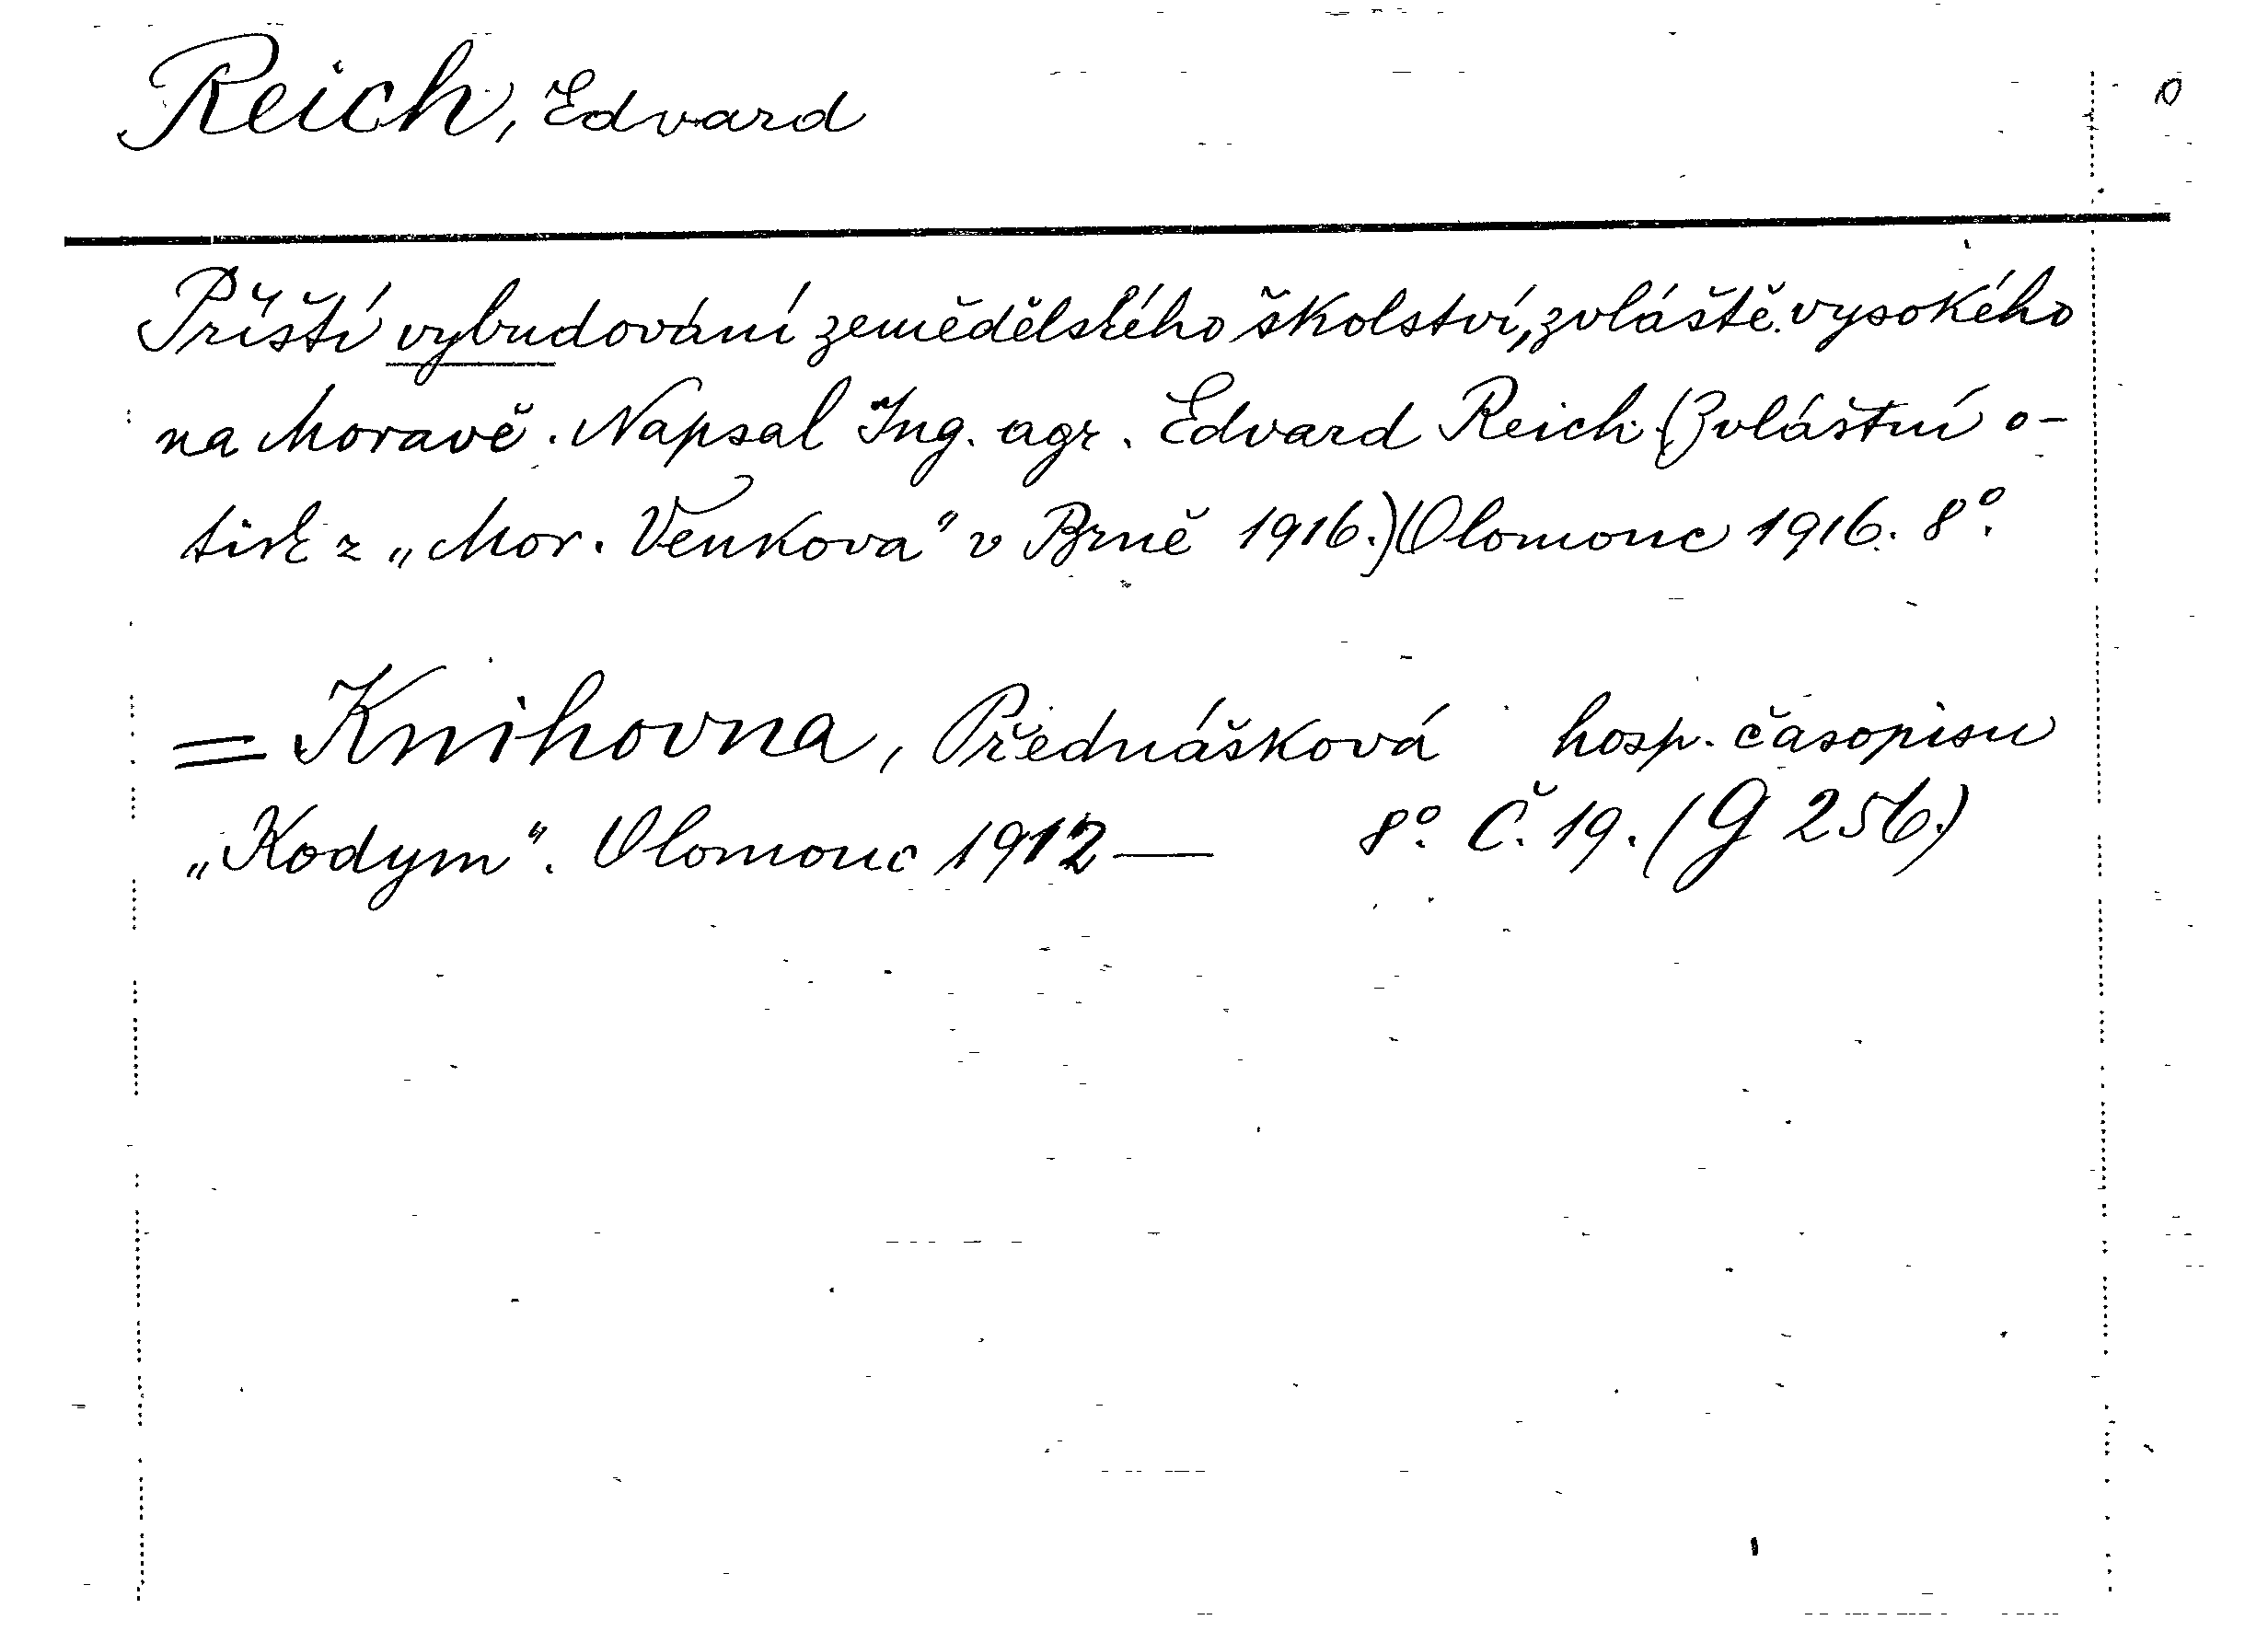 Reich, Edvard
Příští vybudování zemědělského školství, zvláště vysokého
na Moravě. Napsal Ing. agr. Edvard Reich. (Zvláštní o-
tisk z „Mor. Venkova“ v Brně 1916.) Olomouc 1916. 8°.
= Knihovna, Přednášková hosp. časopisu
„Kodym“. Olomouc 1912— 8°. Č. 19. (G 256.)